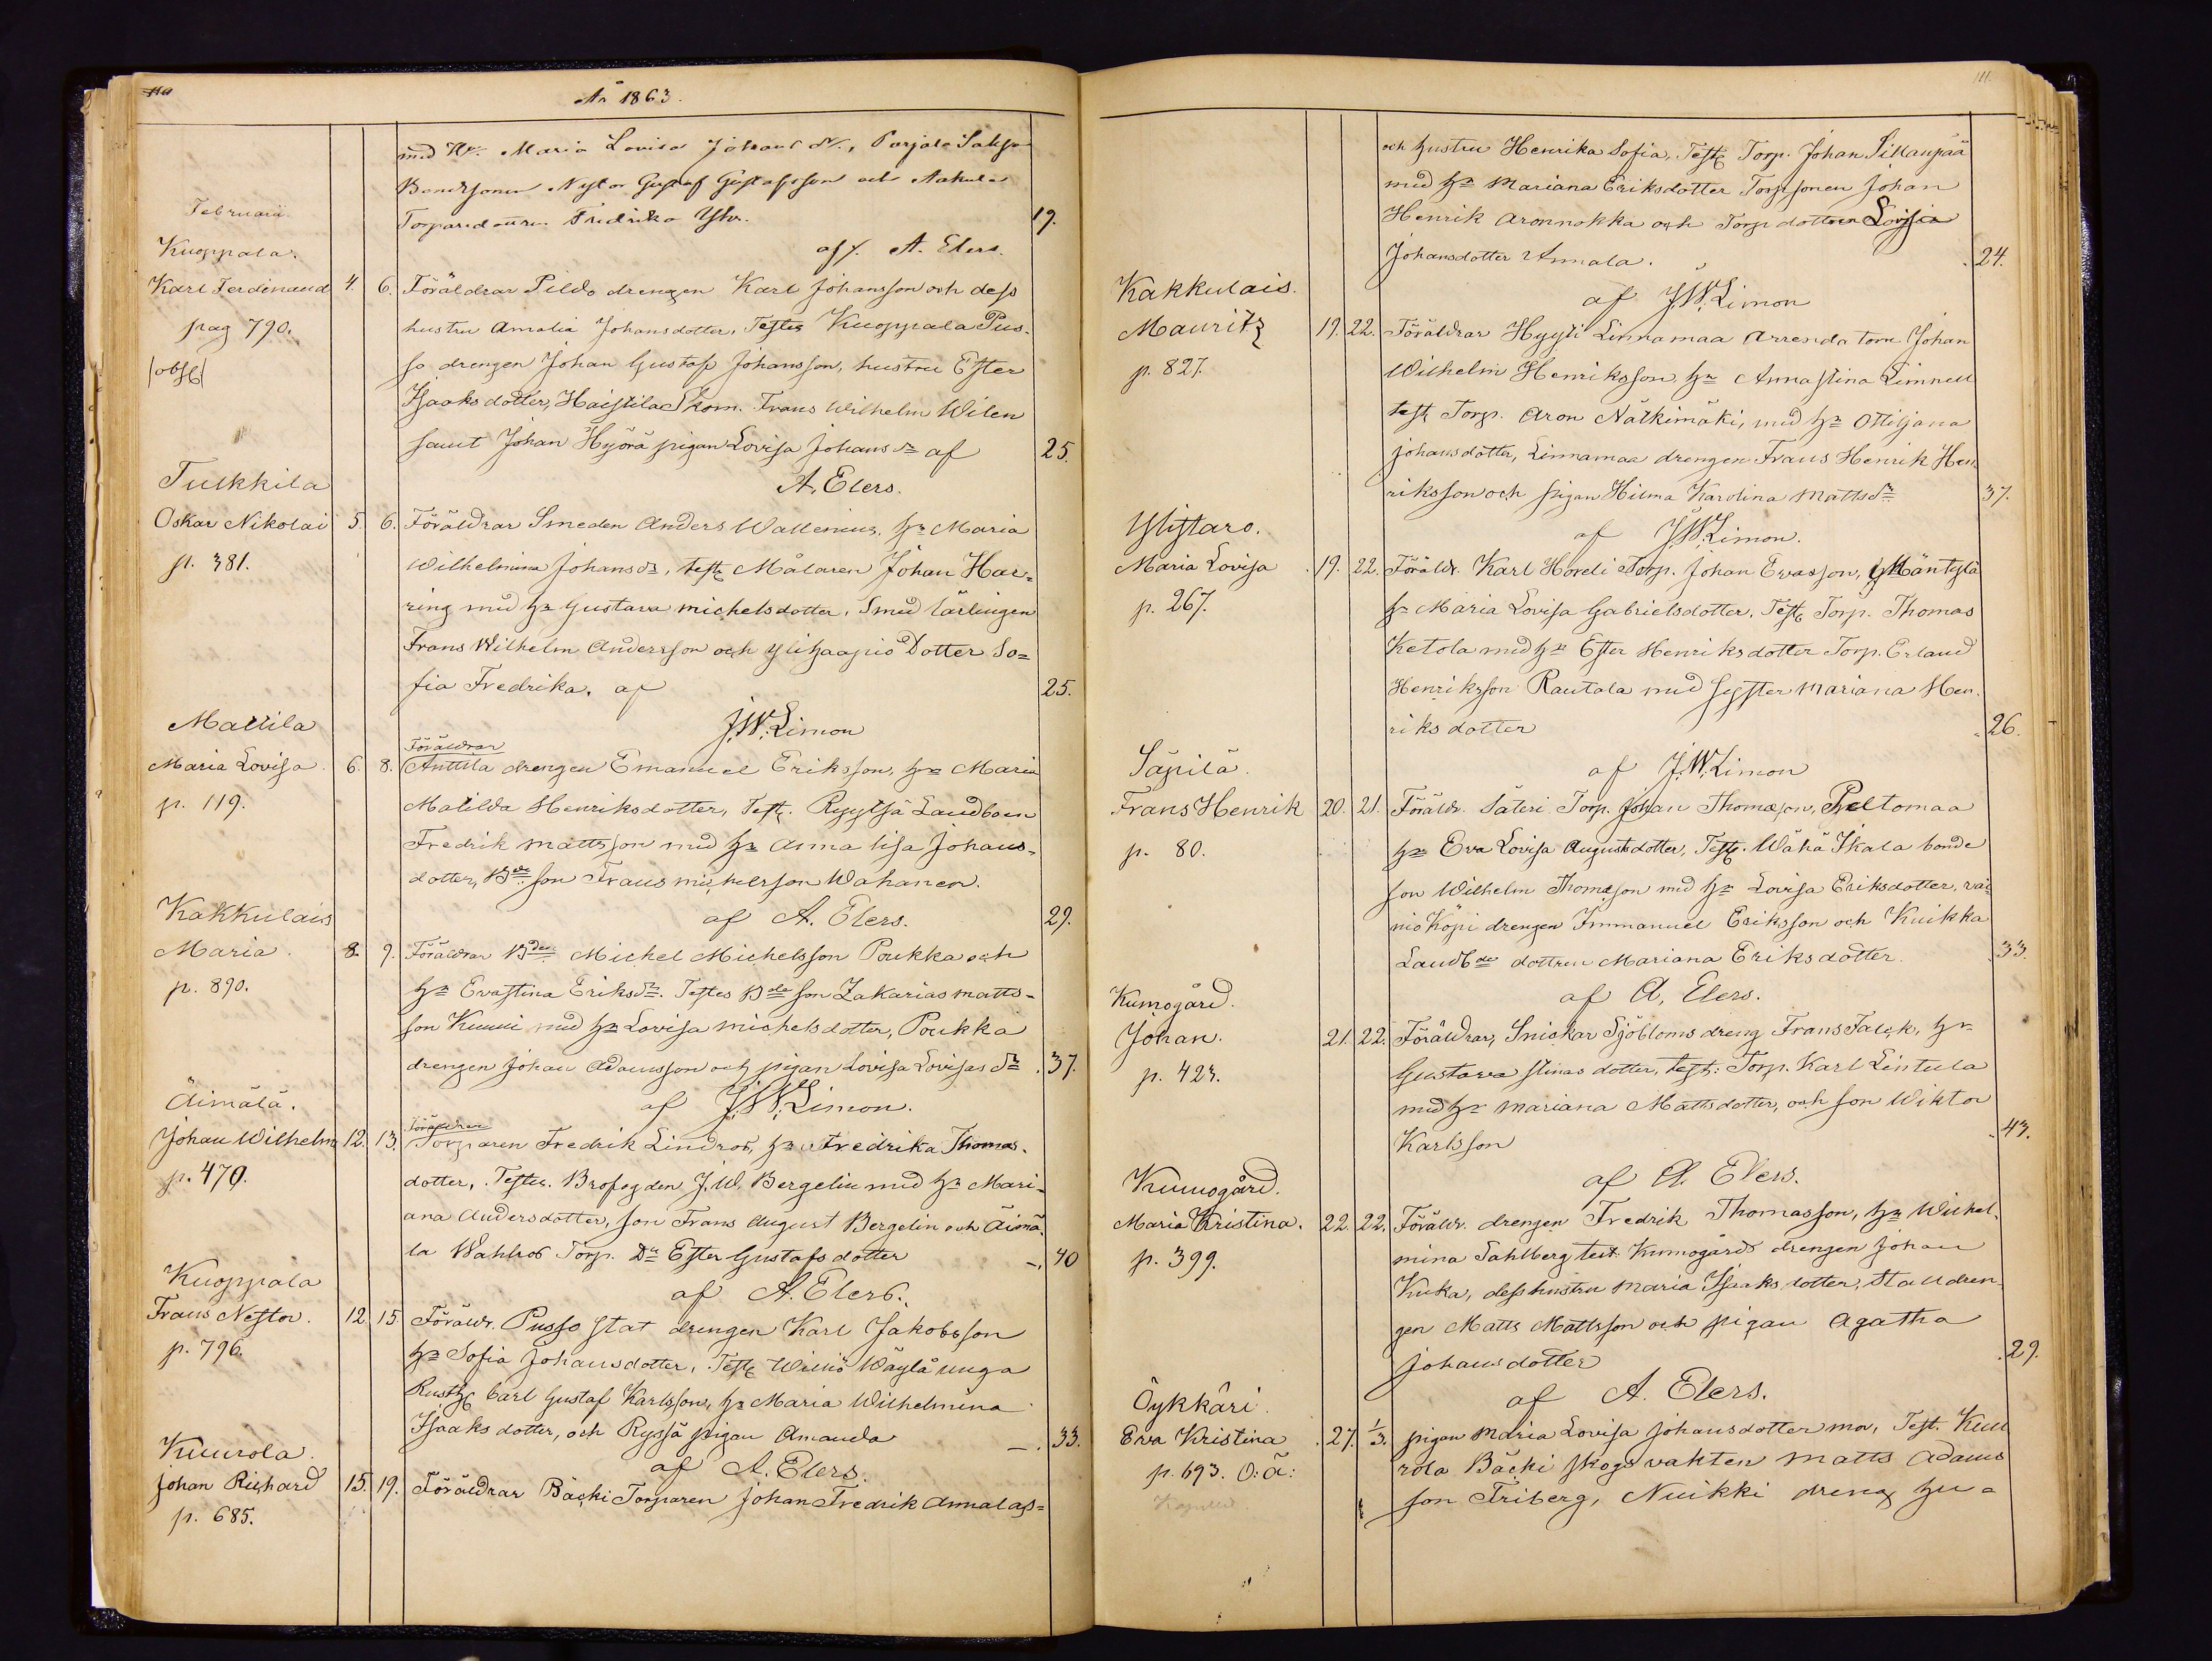 110
År 1863.
med H:u Maria Lovisa Johans dr., Parjala Saksa
Bondsonen Nylor Gustaf Gustafsson och Aakula
Torparedottren Fredrika Yhr. 19.
af/. A. Elers.
Februarii
Kuoppala.
Karl Ferdinand 4. 6. Föräldrar Pildo drengen Karl Johansson och dess
pag 790. hustru Amalia Johansdotter, Testes Kuoppala Pus-
|obs| so drengen Johan Gustaf Johansson, hustru Ester
Isaaksdotter, Haistila Skom. Frans Wilhelm Wilen
samt Johan Hyörä pigan Lovisa Johans dr af 25.
A. Elers.
Tulkkila
Oskar Nikolai 5. 6. Föräldrar Smeden Anders Wallenius, hr Maria
p. 381. Wilhelmina Johans dr, test Målaren Johan Har=
ring med hr Gustava Michelsdotter, Smed lärlingen
Frans Wilhelm Andersson och Ylihaapio Dotter So=
fia Fredrika. af 25.
J.W. Limon
Mattila Föräldrar
Maria Lovisa. 6. 8. Anttila drengen Emanuel Eriksson, hr Maria
p. 119. Matilda Henriksdotter, Test. Ryytsä Landboen
Fredrik Mattsson med hr Anna Lisa Johans-
dotter, Bde son Frans Michelsson Wahanen.
af A. Elers. 29.
Kakkulais
Maria. 8. 9. Föräldrar Bden Michel Michelsson Poukka och
p. 890. hr Evastina Eriksdr. Testes Bde son Zakarias Matts-
son Kunni med hr Lovisa Michelsdotter, Poukka
drengen Johan Adamsson och pigan Lovisa Lovisas dr. 37.
af J.W. Limon.
Äimälä. Föräldrar
Johan Wilhelm 12. 13. Torparen Fredrik Lindros, hr Fredrika Thomas-
p. 470. dotter, Testes. Brofogden J.W. Bergelin med hr Mari-
ana Andersdotter, son Frans August Bergelin och Äimä-
la Wahlros Torp. Dr Ester Gustafsdotter 40
af A. Elers.
Kuoppala
Frans Nestor. 12. 15. Föräldr. Pusso stat drengen Karl Jakobsson
p. 796. hr Sofia Johansdotter, Test Willio Wäylä unga
Rusth Carl Gustaf Karlsson, hr Maria Wilhelmina
Isaaksdotter, och Ryssä pigan Amanda 33.
af A. Elers.
Kuurola.
Johan Richard 15. 19. Föräldrar Bäcki Torparen Johan Fredrik Annalas=
p. 685.
111.
och hustru Henrika Sofia, Test Torp. Johan Sillanpää
med hr Mariana Eriksdotter Torpsonen Johan
Henrik Aronnokka och Torp dottren Lovisa
Johansdotter Annala. 24.
af J.W. Limon
Kakkulais.
Mauritz 19. 22. Föräldrar Hyyti Linnamaa Arrendatorn Johan
p. 827. Wilhelm Henriksson hr Anna Stina Limnell
test Torp. Aron Nätkimäki, med hr Ottiljana
Johansdotter, Linnamaa drengen Frans Henrik Hen-
riksson och pigan Hilma Karolina Mattsdr 37.
af J.W. Limon.
Ylistaro.
Maria Lovisa. 19. 22. Föräldr. Karl Hoveli Torp. Johan Evasson, Mäntylä
p. 267. hr Maria Lovisa Gabrielsdotter, Test Torp. Thomas
Ketola med hr Ester Henriksdotter Torp. Erland
Henriksson Rautala med syster Mariana Hen-
riksdotter 26.
af J.W. Limon
Säpilä.
Frans Henrik 20. 21. Föräldr. Säteri Torp. Johan Thomasson, Peltomaa
p. 80. hr Eva Lovisa Augustsdotter, Test. Wähä Ikala bonde
son Wilhelm Thomasson med hr Lovisa Eriksdotter, vai-
nio Köpi drengen Immanuel Eriksson och Kuikka
Landb de dottren Mariana Eriksdotter 33.
af A. Elers.
Kumogård.
Johan. 21. 22. Föräldrar, Snickar Sjöbloms dreng Frans Falck, hr
p. 423. Gustava Stinas dotter, test: Torp. Karl Lintula
med hr Mariana Mattsdotter, och son Wiktor
Karlsson 43.
af A. Elers.
Kumogård.
Maria Kristina. 22. 22. Föräldr. drengen Fredrik Thomasson, hr Wilhel-
p. 399. mina Sahlberg test Kumogårds drengen Johan
Kuka, dess hustru Maria Isaksdotter, Stalldren-
gen Matts Mattsson och pigan Agatha
Johansdotter 29.
af A. Elers.
Öykkäri.
Eva Kristina 27. 1/3. pigan Maria Lovisa Johansdotter mor, Test. Kuu
p. 693. O:Ä: rola Bäcki skogvakten Matts Adams
son Friberg, Nuikki dreng hu=